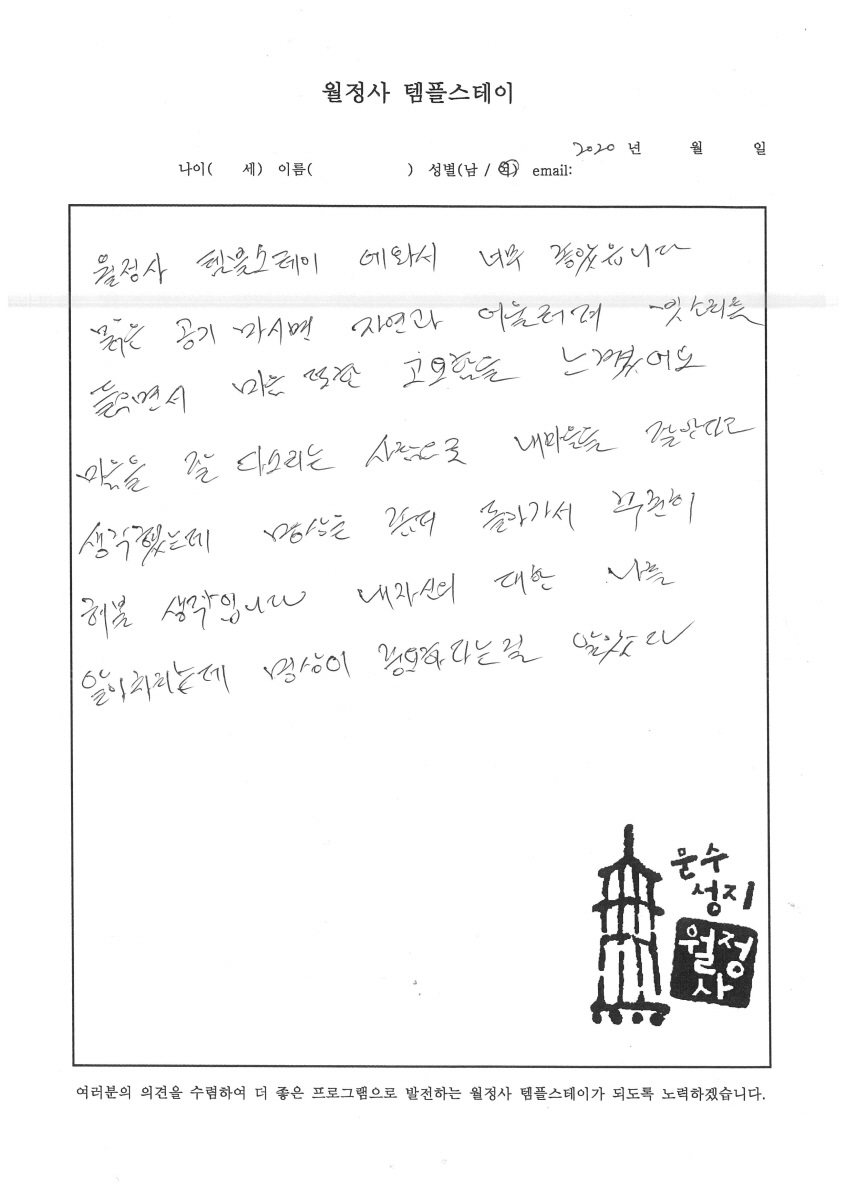 월정사 템플스테이
2020 년 월 일
나이( 세) 이름( ) 성별(남 / 여) email:
월정사 템플스테이 에와서 너무 좋았읍니다
맑은 공기 마시며 자연과 어울러져 소리를
들으면서 마음 고요함을 느꼈어요
마음을 잘 다스리는 사람으로 내마음을 잘안다고
생각했는데 명상은 돌아가서 꾸준히
해볼 생각입니다 내자신의 대한 나를
알아차리는데 명상이 중요하다는걸 알았다
문수
성지
월정
사
여러분의 의견을 수렴하여 더 좋은 프로그램으로 발전하는 월정사 템플스테이가 되도록 노력하겠습니다.